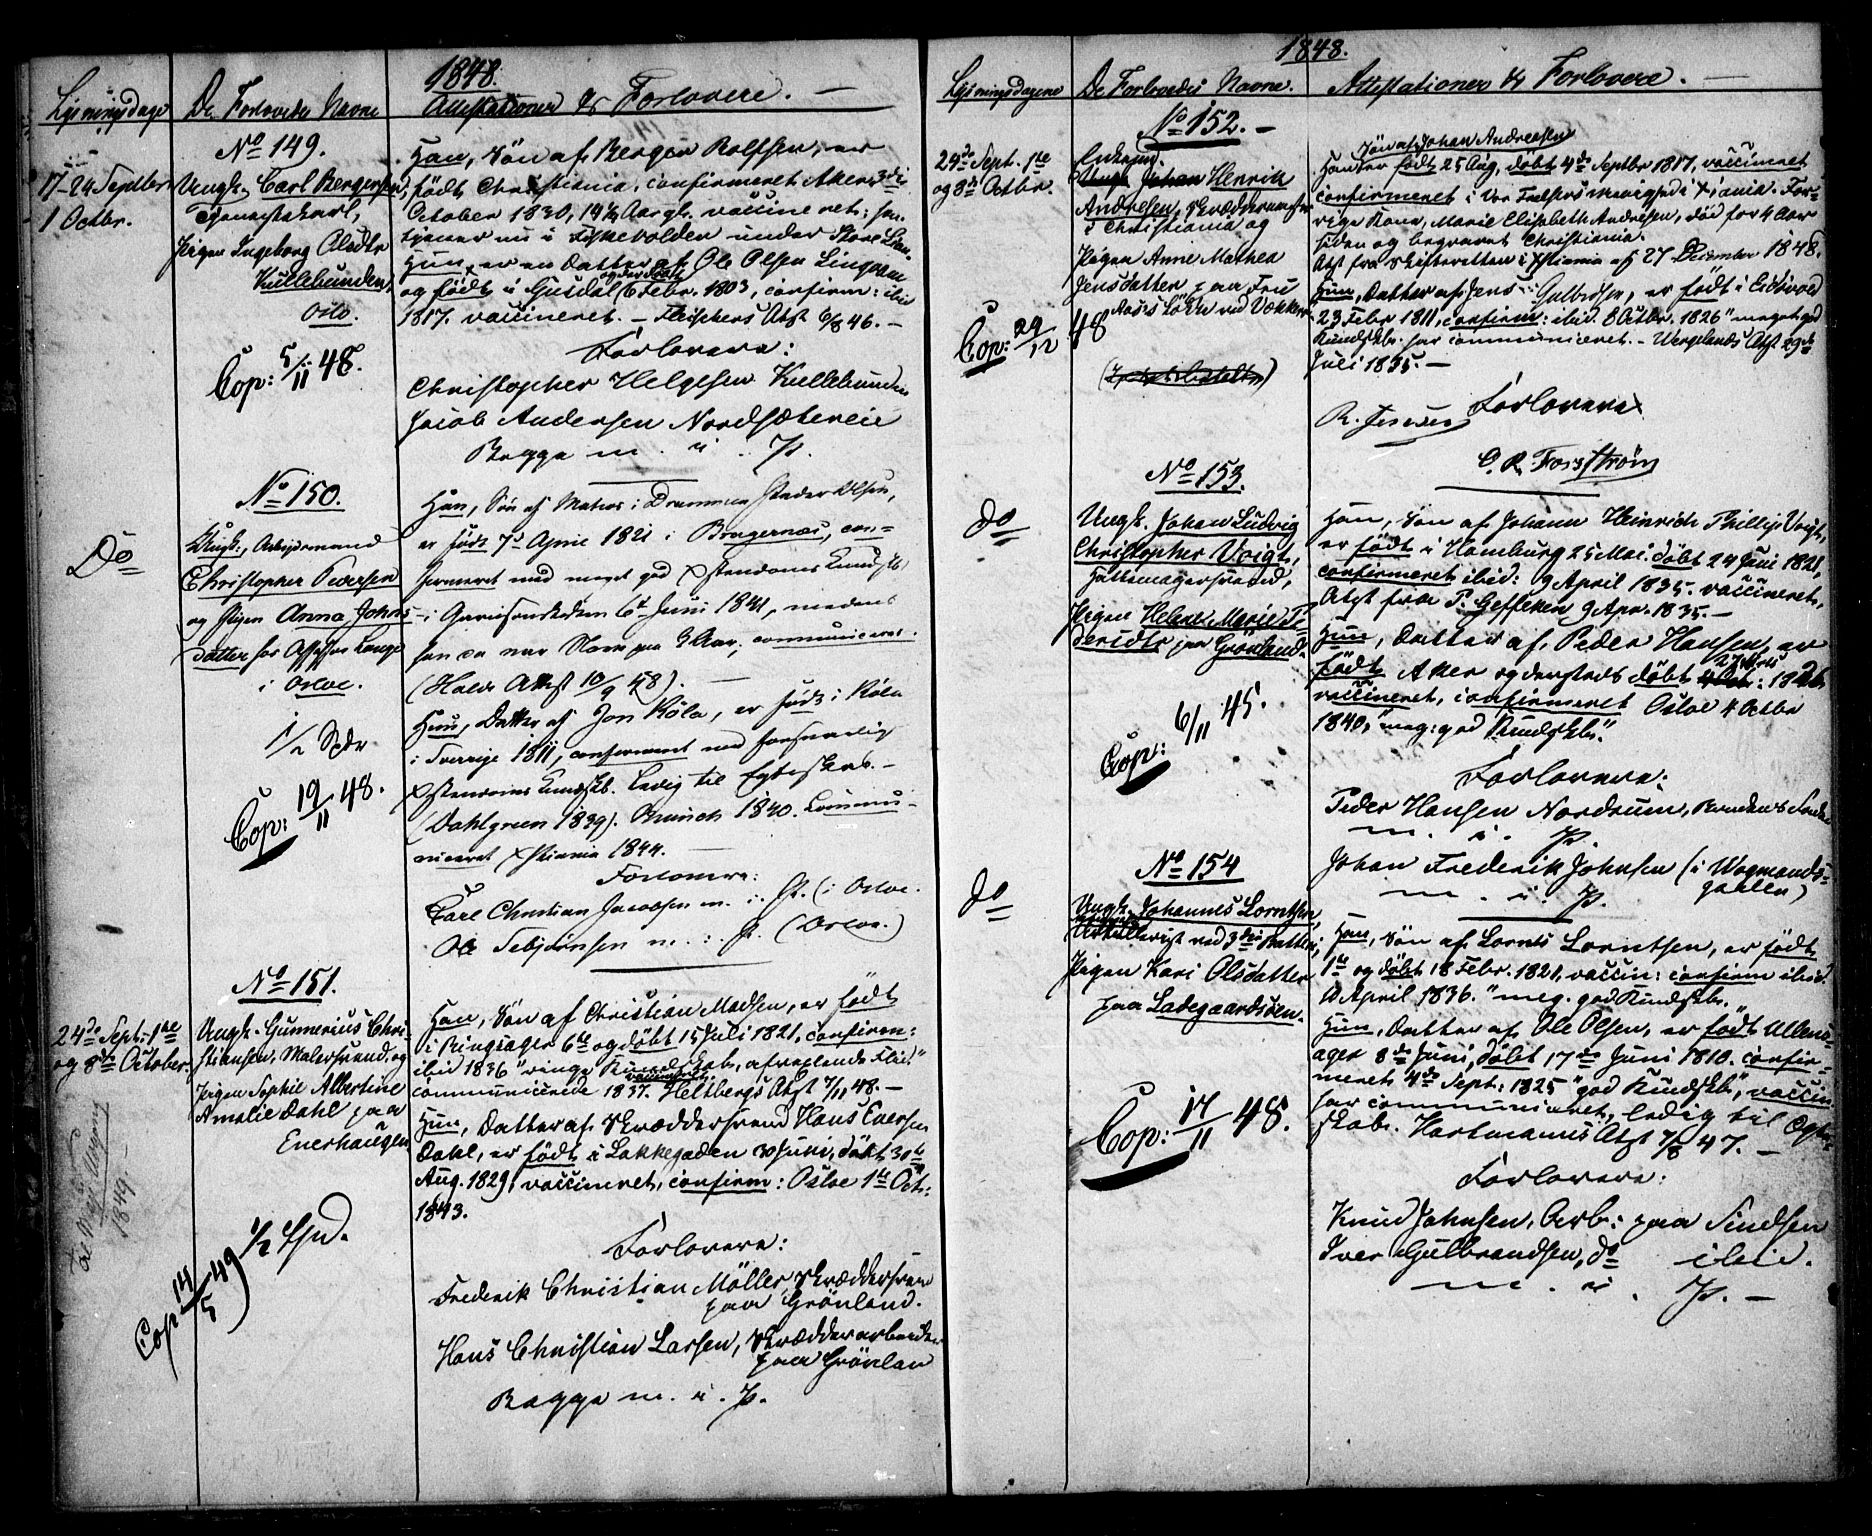 1848.
Lysningsdage De Forlovedes Navne Attestationer & Forlovere. —
No 149.
17-24 Septbr
1 Octbr.
Ungk. Carl Bergersen,
Tjenestekarl,
Pigen Ingeborg Olsdtr
Kullebunden,
Oslo.
Cop: 5/11 48.
Han, Søn af Berger Rolfsen, er
født Christiania, confirmeret Aker 3die
October 1830, 14½ Aar gl. vaccineret; han
tjener nu i
Hun, er en Datter af Ole Olsen
og født i Gusdal og der døbt 6 Febr. 1803, confirm: ibid
1817. vaccineret. — Fleischers Atst 6/8 46. —
Forlovere:
Christopher Helgesen Kullebunden
Jacob Andersen Nordsætereie
Begge m. i. P.
No 150.
Do
Ungk., Arbeidsmand
Christopher Pedersen
og Pigen Anna Johns-
datter hos Assessor Lange
i Osloe.
1/2 Spdr
Cop: 19/11 48.
Han, Søn af Matros i Drammen Peder Olsen,
er født 7de April 1821 i Bragernæs, con-
firmeret med meget god Xstendoms Kundsk.
i Garnisonskirken 6te Juni 1841,
han da var Norn paa 9 Aar, communiceret.
(Holds Attest 10/9 48). —
Hun, Datter af Jon Köla, er født i Köla
i Sverrige 1811, confirmeret med forsvarlig
Xstendoms Kundskb. Ledig til Egteskab. —
(Dahlgreen 1839). Munch 1840. Commu-
niceret Xstiania 1844. —
Forlovere:
Carl Christian Jacobsen m. i. P. (i Osloe.
Ole Tebjørnsen m. i. P. (Osloe.)
No 151.
24de Sept. 1te
og 8de October.
Ungk. Gunnerius Chri-
stiansen, Malersvend, og
Pigen Sophie Albertine
Amalie Dahl paa
Enerhaugen
1/2 Spd.
Cop: 14/5 49
1849.
Han, Søn af Christian Madsen, er født
i Ringsager 6te og døbt 15 Juli 1821, confirm:
ibid 1836 "ringe Kundskab, afvexlende Flid"
vaccineret
communicerede 1837. Heltbergs Atst 7/11 48. —
Hun, Datter af Skræddersvend Hans Evensen
Dahl, er født i Lakkegaden 30 Juni, døbt 30te
Aug. 1829, vaccineret, confirm: Osloe 1te Oct:
1843.
Forlovere:
Frederik Christian Möller, Skræddersvend
paa Grönland.
Hans Christian Larsen, Skrædderarbeider
paa Grönland
Begge m. i. P.
1848.
Lysningsdagene De Forlovedes Navne. Attestationer & Forlovere. —
No 152. —
24de Sept. 1te
og 8de Octbr.
Enkem.
Ungk. Johan Henrik
Andresen, Skræddermester
i Christiania og
Pigen Anne Mathea
Jensdatter paa Fru
Aas's Løkke ved Vækker
Cop: 29/12 48
Søn af Johan Andreesen
Han er født 25 Aug, døbt 4de Septbr 1817, vaccineret
confirmeret i Vor Frelsers Menighed i Xiania. For-
rige Kone, Marie Elisabeth Andresen, död for 4 Aar
siden og begravet Christiania.
Atst fra Skifteretten i Xstiania af 27 December 1848.
Hun, Datter af Jens Gulbrdsen, er født i Eidsvold
23 Febr 1811, confirm: ibid. 8 Octbr. 1826 "meget god
Kundskb. har communiceret. — Wergelands Atst 29de
Juli 1835. —
Forlovere
R. Jensen
C. R. Forsström
No 153.
do
Ungk. Johan Ludvig
Christopher Voigt,
Hattemagersvend,
Pigen Helene Marie Pe-
dersdtr paa Grönland.
Cop: 6/11 45.
Han, Søn af Johann Heinrich Phillip Voigt,
er født i Hamburg 25 Mai, döbt 24 Juni 1821,
confirmeret ibid: 9 April 1835. vaccineret,
Atst fra P. Geffcken 9 Apr. 1835. —
Hun, Datter af Peder Hansen, er
født Aker og dersteds døbt 1826
vaccineret, confirmeret Osloe 4 Octbr
1840, "meg: god Kundskb."
Forlovere:
Peder Hansen Nordrum, Brudens Fader
m. i. P.
Johan Frederik Johnsen (i Wognmands-
gaden)
m. i. P.
No 154
do
Ungk. Johannes Lorntsen,
Artillerist ved 3die Batteri,
Pigen Kari Olsdatter
paa Ladegaardsöen.
Cop: 17/11 48.
Han, Søn af Lornts Lorntsen, er født
1te og døbt 18 Febr. 1821, vaccin: confirm ibid.
April 1836. "meg. god Kundskb."
Hun, Datter af Ole Olsen, er født Ullens-
ager 8de Juni, døbt 17de Juni 1810. confir-
meret 4de Sept: 1825 "god Kundskb", vaccin
har communiceret, ledig til Egte-
skab. Hartmanns Atst 7/8 47. —
Forlovere:
Knud Johnsen, Arb: paa Tindsen
Iver Gulbrandsen, do ibid.
m. i. P. —